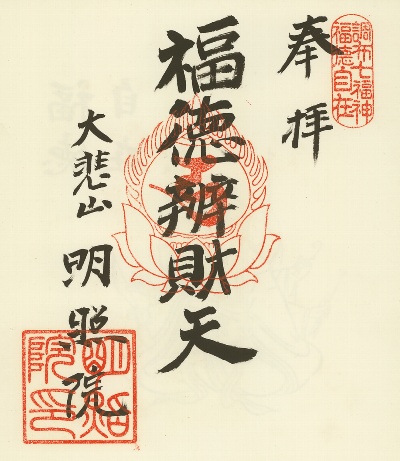 調布七福神
福徳自在
奉拝
福徳辨財天
大悲山
明照院
明照
院印